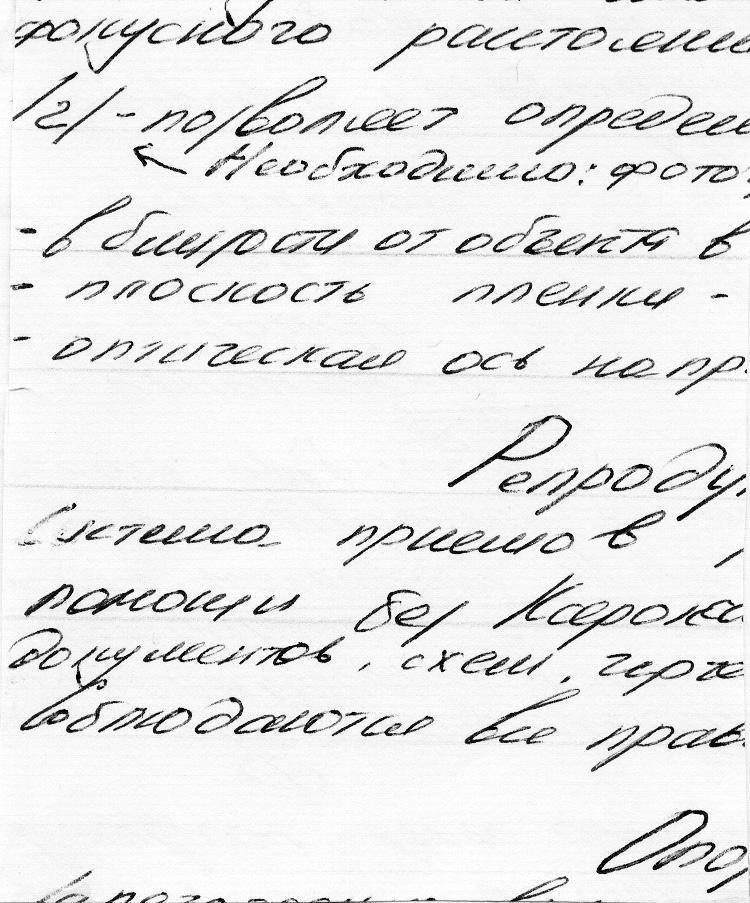 фокусного расстояни
/2/ - позволяет определи
Необходимо: фото
- вблизости от объекта в
- плоскость пленки -
- оптическая ось напр
Репродук
Система приемов
помощи без Ксероко
документов, схем, черте
Соблюдаются все прав
Опо